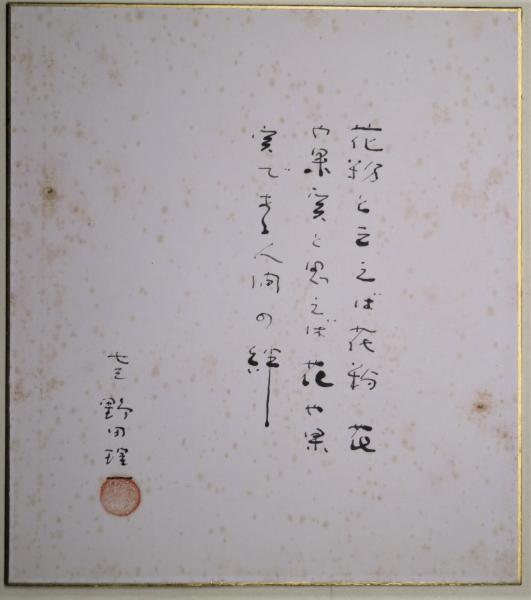 花粉と云えば花粉 花
や果実と思えば花や果
実でもる人間の絆
七三 野田理一